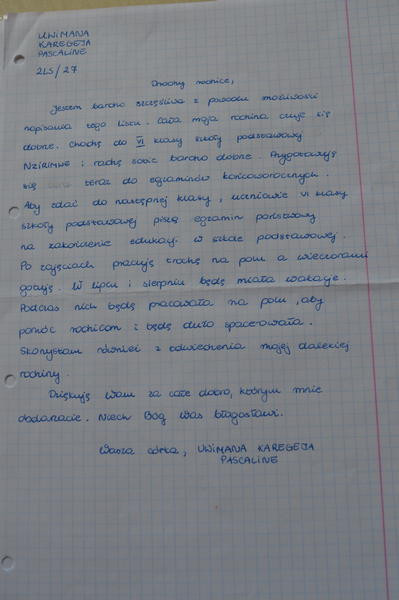 UWIMANA
KAREGEJA
PASCALINE
2LS/27
Drodzy rodzice,
Jestem bardzo szczęśliwa z powodu możliwości
napisania tego listu. Cała moja rodzina czuje się
dobrze. Chodzę do VI klasy szkoły podstawowej
NZIRIMWE i radzę sobie bardzo dobrze. Przygotowuję
się teraz do egzaminów końcoworocznych.
Aby zdać do następnej klasy, uczniowie VI klasy
szkoły podstawowej piszą egzamin państwowy
na zakończenie edukacji w szkole podstawowej.
Po zajęciach pracuję trochę na polu a wieczorami
gotuję. W lipcu i sierpniu będę miała wakacje.
Podczas nich będę pracowała na polu, aby
pomóc rodzicom i będę dużo spacerowała.
Skorzystam również z odwiedzenia mojej dalekiej
rodziny.
Dziękuję Wam za całe dobro, którym mnie
obdarzacie. Niech Bóg Was błogosławi.
Wasza córka, UWIMANA KAREGEJA
PASCALINE